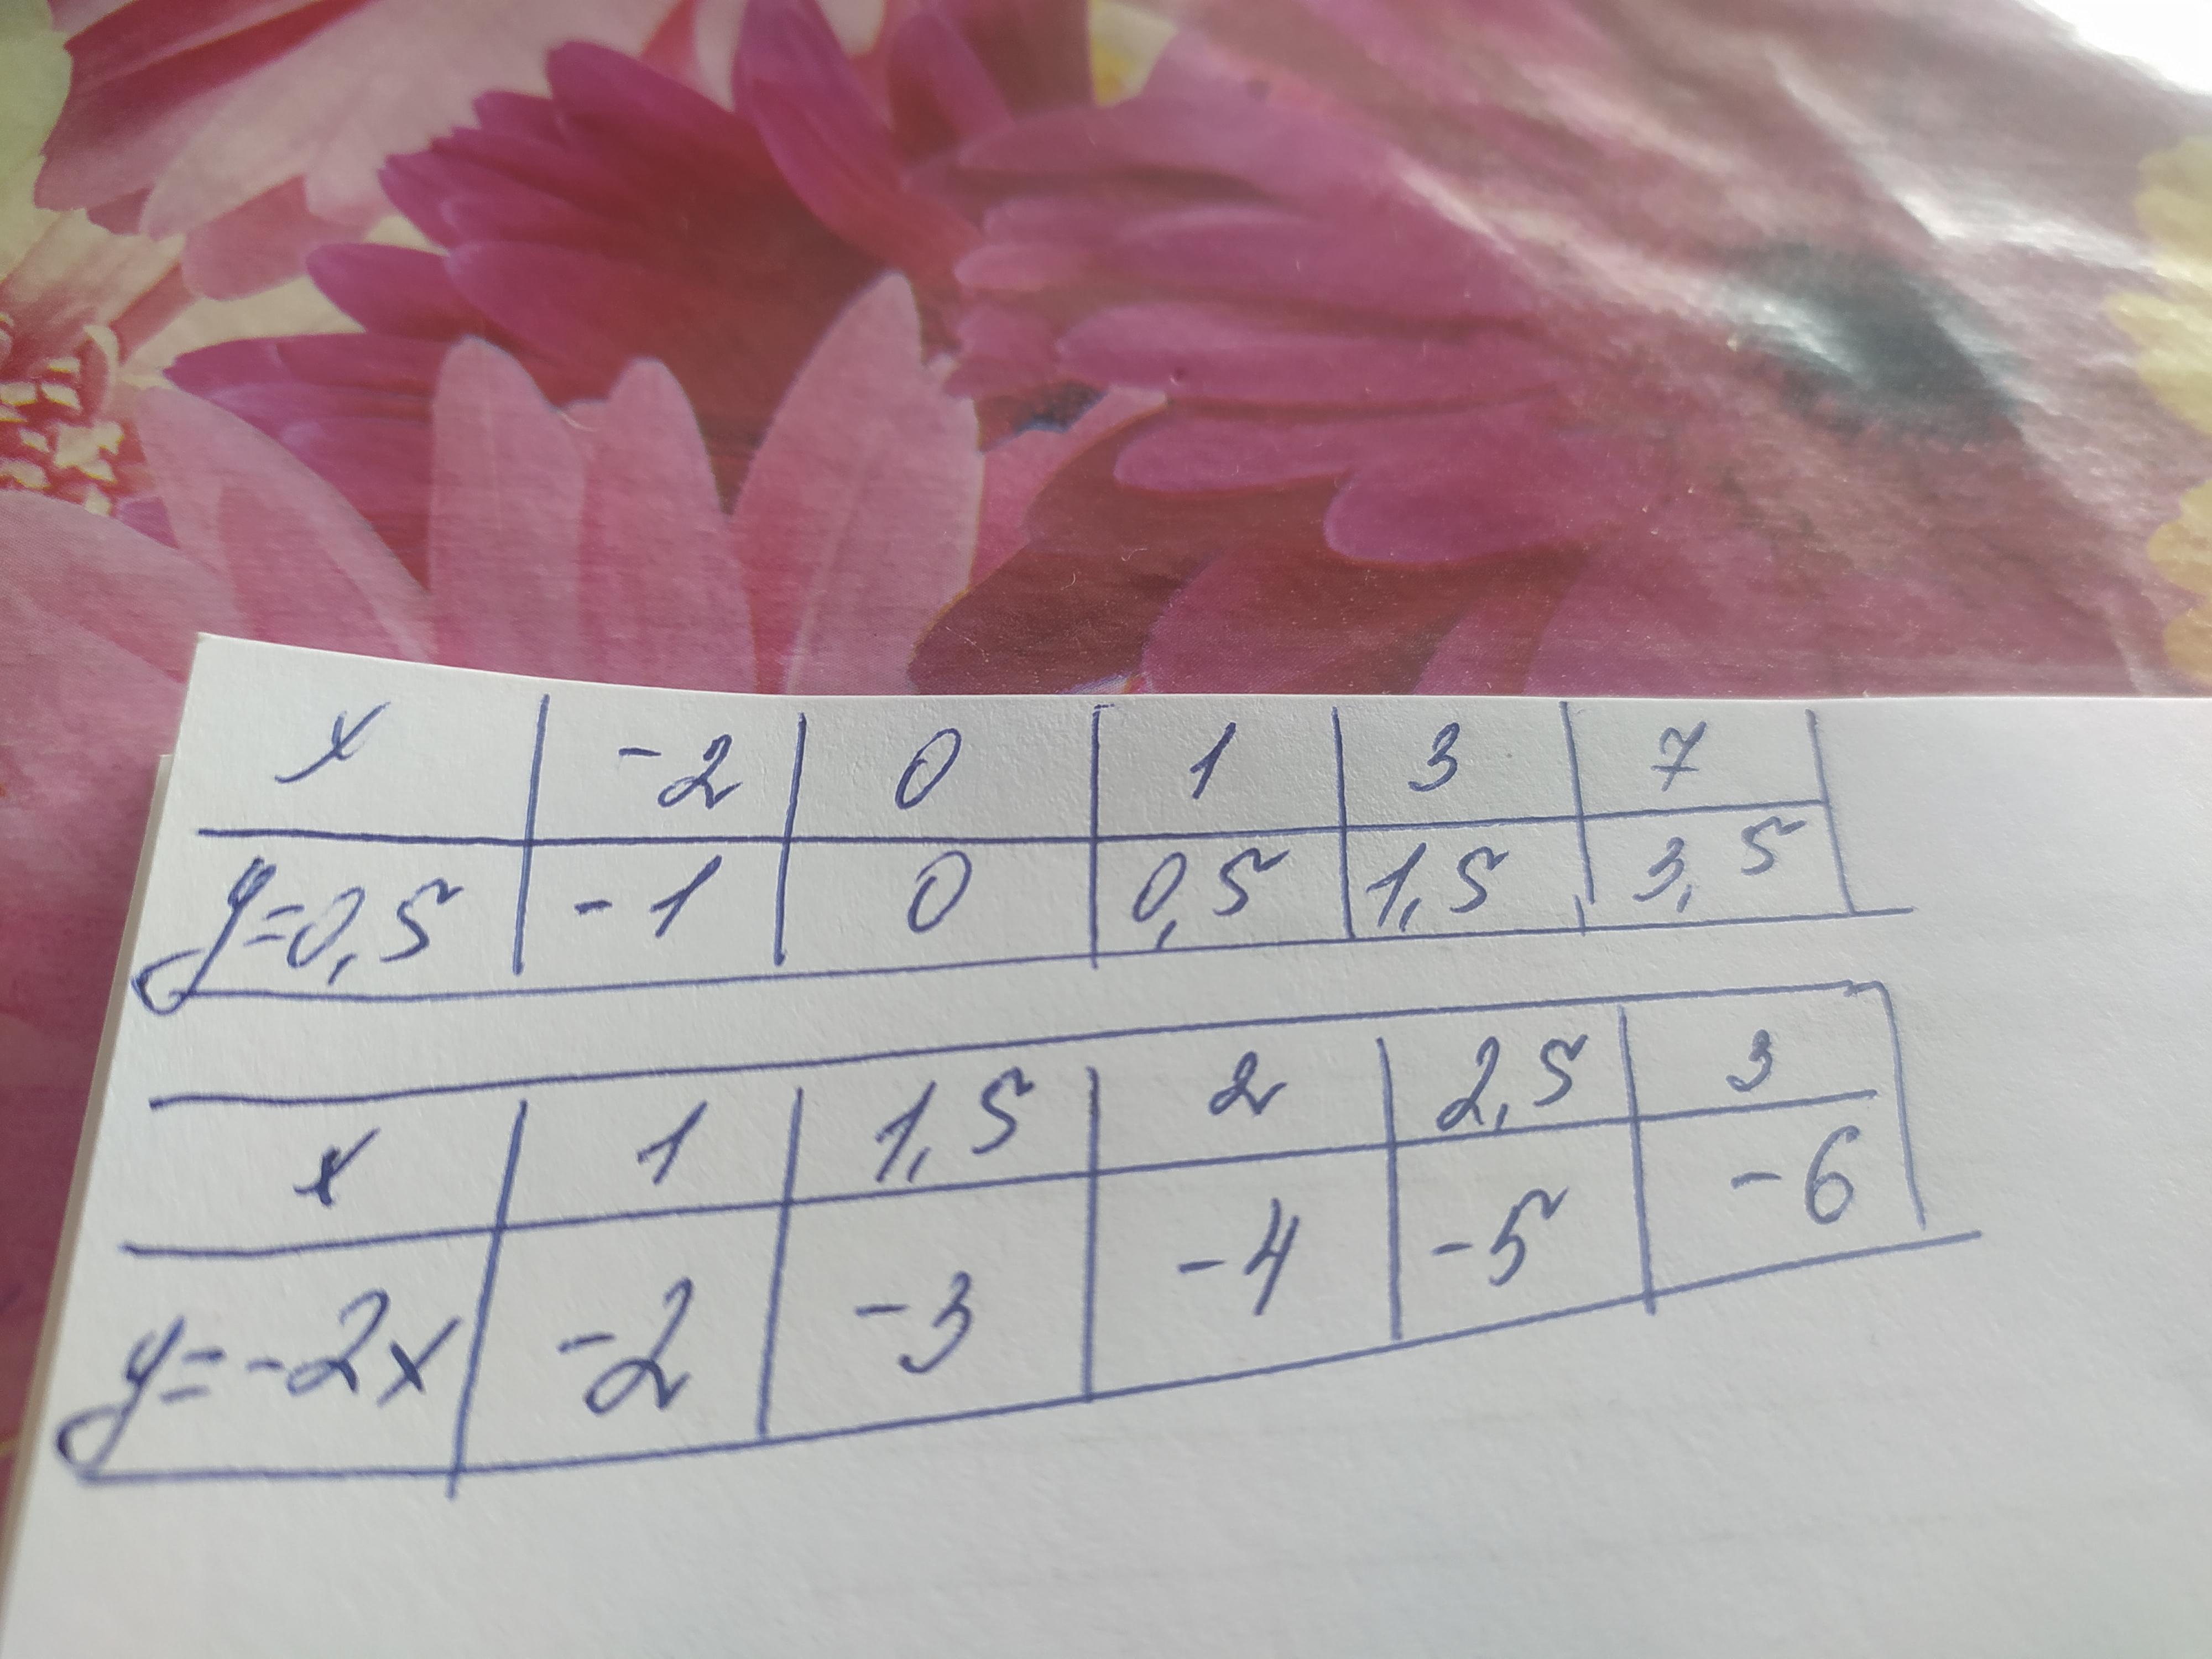 x -2 0 1 3 7
y=0,5 -1 0 0,5 1,5 3,5
x 1 1,5 2 2,5 3
y=-2x -2 -3 -4 -5 -6